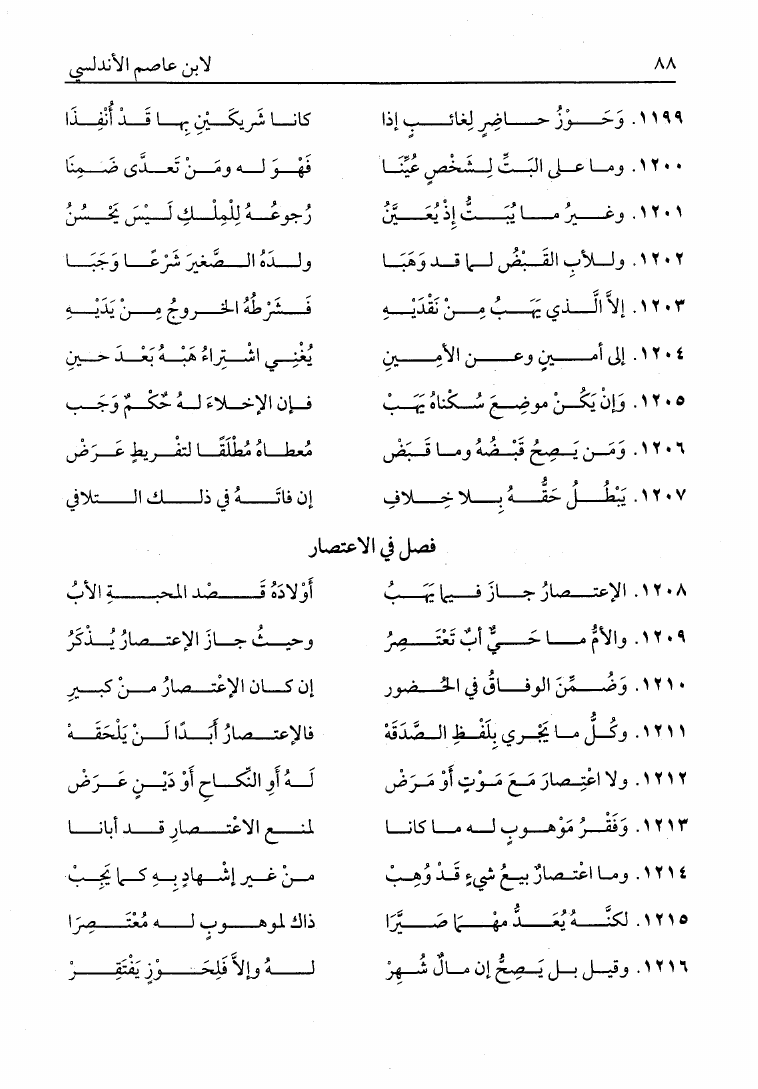 ٨٨ لابن عاصم الأندلسي
١١٩٩. وَحَوْزُ حاضِرٍ لِغائبٍ إذا كانا شَرِيكَيْنِ بِها قَدْ أُنْفِذَا
١٢٠٠. وما على البَتِّ لِشَخْصٍ عُيِّنَا فَهْوَ له ومَنْ تَعدَّى ضَمِنَا
١٢٠١. وغَيرُ ما يُبَتُّ إذْ يُعَيَّنُ رُجوعُهُ لِلْمِلْكِ لَيْسَ يَحْسُنُ
١٢٠٢. ولِلأبِ القَبْضُ لِما قد وَهَبَا ولدَهُ الصَّغيرَ شَرْعًا وَجَبَا
١٢٠٣. إلاَّ الَّذي يَهَبُ مِنْ نَقْدَيْهِ فَشَرْطُهُ الخروجُ مِنْ يَدَيْهِ
١٢٠٤. إلى أمينٍ وعن الأمينِ يُغْنِي اشْتِراءُ هَبْهُ بَعْدَ حينِ
١٢٠٥. وَإنْ يَكُنْ موضِعَ سُكْناهُ يَهَبْ فإن الإخلاءَ لهُ حُكْمٌ وَجَب
١٢٠٦. وَمَن يَصِحُّ قَبْضُهُ وما قَبَضْ مُعطاهُ مُطْلَقًا لتفْريطٍ عَرَض
١٢٠٧. يَبْطُلُ حَقُّهُ بِلا خِلافِ إن فاتَهُ في ذلك التلافي
فصل في الاعتصار
١٢٠٨. الإعتصارُ جازَ فيما يَهَبُ أوْلادَهُ قَصْد المحبةِ الأبُ
١٢٠٩. والأمُّ ما حَيٌّ أبٌ تَعْتَصِرُ وحيثُ جازَ الإعتصارُ يُذْكَرُ
١٢١٠. وَضُمِّنَ الوِفاقُ في الحُضورِ إن كان الإعْتصارُ مِنْ كبيرِ
١٢١١. وكُلُّ ما يَجْري بِلَفْظِ الصَّدَقَهْ فالإعتصارُ أبَدًا لَنْ يَلْحَقَهْ
١٢١٢. ولا اعْتِصارَ مَعَ مَوْتٍ أوْ مَرَض لَهُ أوِ النِّكاحِ أوْ دَيْنٍ عَرَضْ
١٢١٣. وَفَقْرُ مَوْهوبٍ له ما كانا لمنعِ الاعْتصارِ قد أبانا
١٢١٤. وما اعْتصارٌ بيعُ شيءٍ قَدْ وُهِبْ مِنْ غيرِ إشْهادٍ بِهِ كما يَجِبْ
١٢١٥. لكنَّهُ يُعَدُّ مهْما صَيَّرَا ذاك لموهوبٍ له مُعْتَصِرَا
١٢١٦. وقيل بل يَصِحُّ إن مالٌ شُهِرْ لهُ وإلاَّ فَلِحَوْزٍ يَفْتَقِرْ